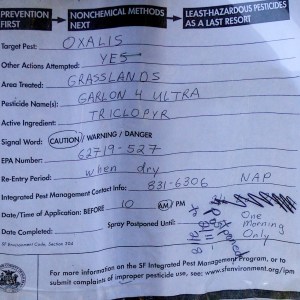 PREVENTION FIRST
NONCHEMICAL METHODS NEXT
LEAST-HAZARDOUS PESTICIDES AS A LAST RESORT
Target Pest: OXALIS
Other Actions Attempted: YES
Area Treated: GRASSLANDS
Pesticide Name(s): GARLON 4 ULTRA
Active Ingredient: TRICLOPYR
Signal Word: CAUTION / WARNING / DANGER
EPA Number: 62719-527
Re-Entry Period: when dry
Integrated Pest Management Contact Info: 831-6306 NAP
Date/Time of Application: BEFORE 10 AM / PM
Spray Postponed Until: One Morning Only
Date Completed:
SF Environment Code, Section 304
For more information on the SF Integrated Pest Management Program, or to
submit complaints of improper pesticide use, see: www.sfenvironment.org/ipm